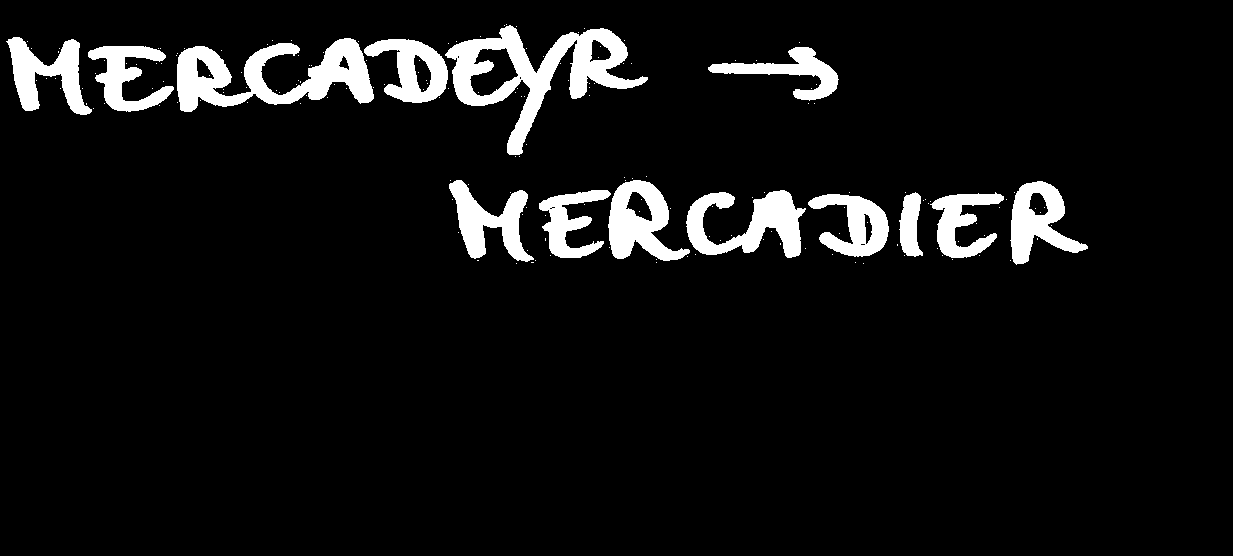 MERCADEYR →
MERCADIER